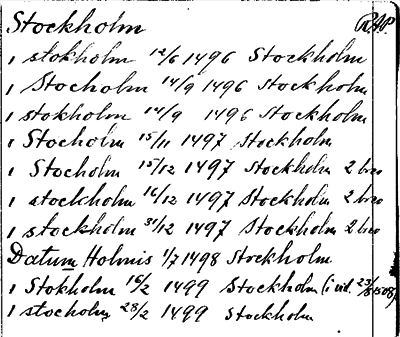 Stockholm RAP.
i stokholm 12/6 1496 Stockholm
i Stocholm 14/9 1496 Stockholm
i stokholm 14/9 1496 Stockholm
i Stocholm 15/11 1497 Stockholm
i Stocholm 15/12 1497 Stockholm 2 brev
i stockholm 16/12 1497 Stockholm 2 brev
i stockholm 31/12 1497 Stockholm 2 brev
Datum Holmis 1/7 1498 Stockholm
i Stokholm 16/2 1499 Stockholm (i vid. 1508)
i stocholm 28/2 1499 Stockholm